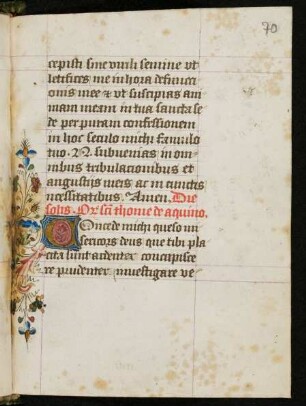 70
cepisti sine virili semine vt
letifices me in hora defuncti
onis mee & vt suscipias ani
mam meam in tua sancta se
de per puram confessionem
in hoc seculo michi famulo
tuo. N. subuenias in om
nibus tribulacionibus et
angustijs meis ac in cunctis
necessitatibus. Amen. Die
solis. Or̄. scī thome de aquino.
Concede michi queso mi
sericors deus que tibi pla
cita sunt ardenter concupisce
re prudenter inuestigare ve